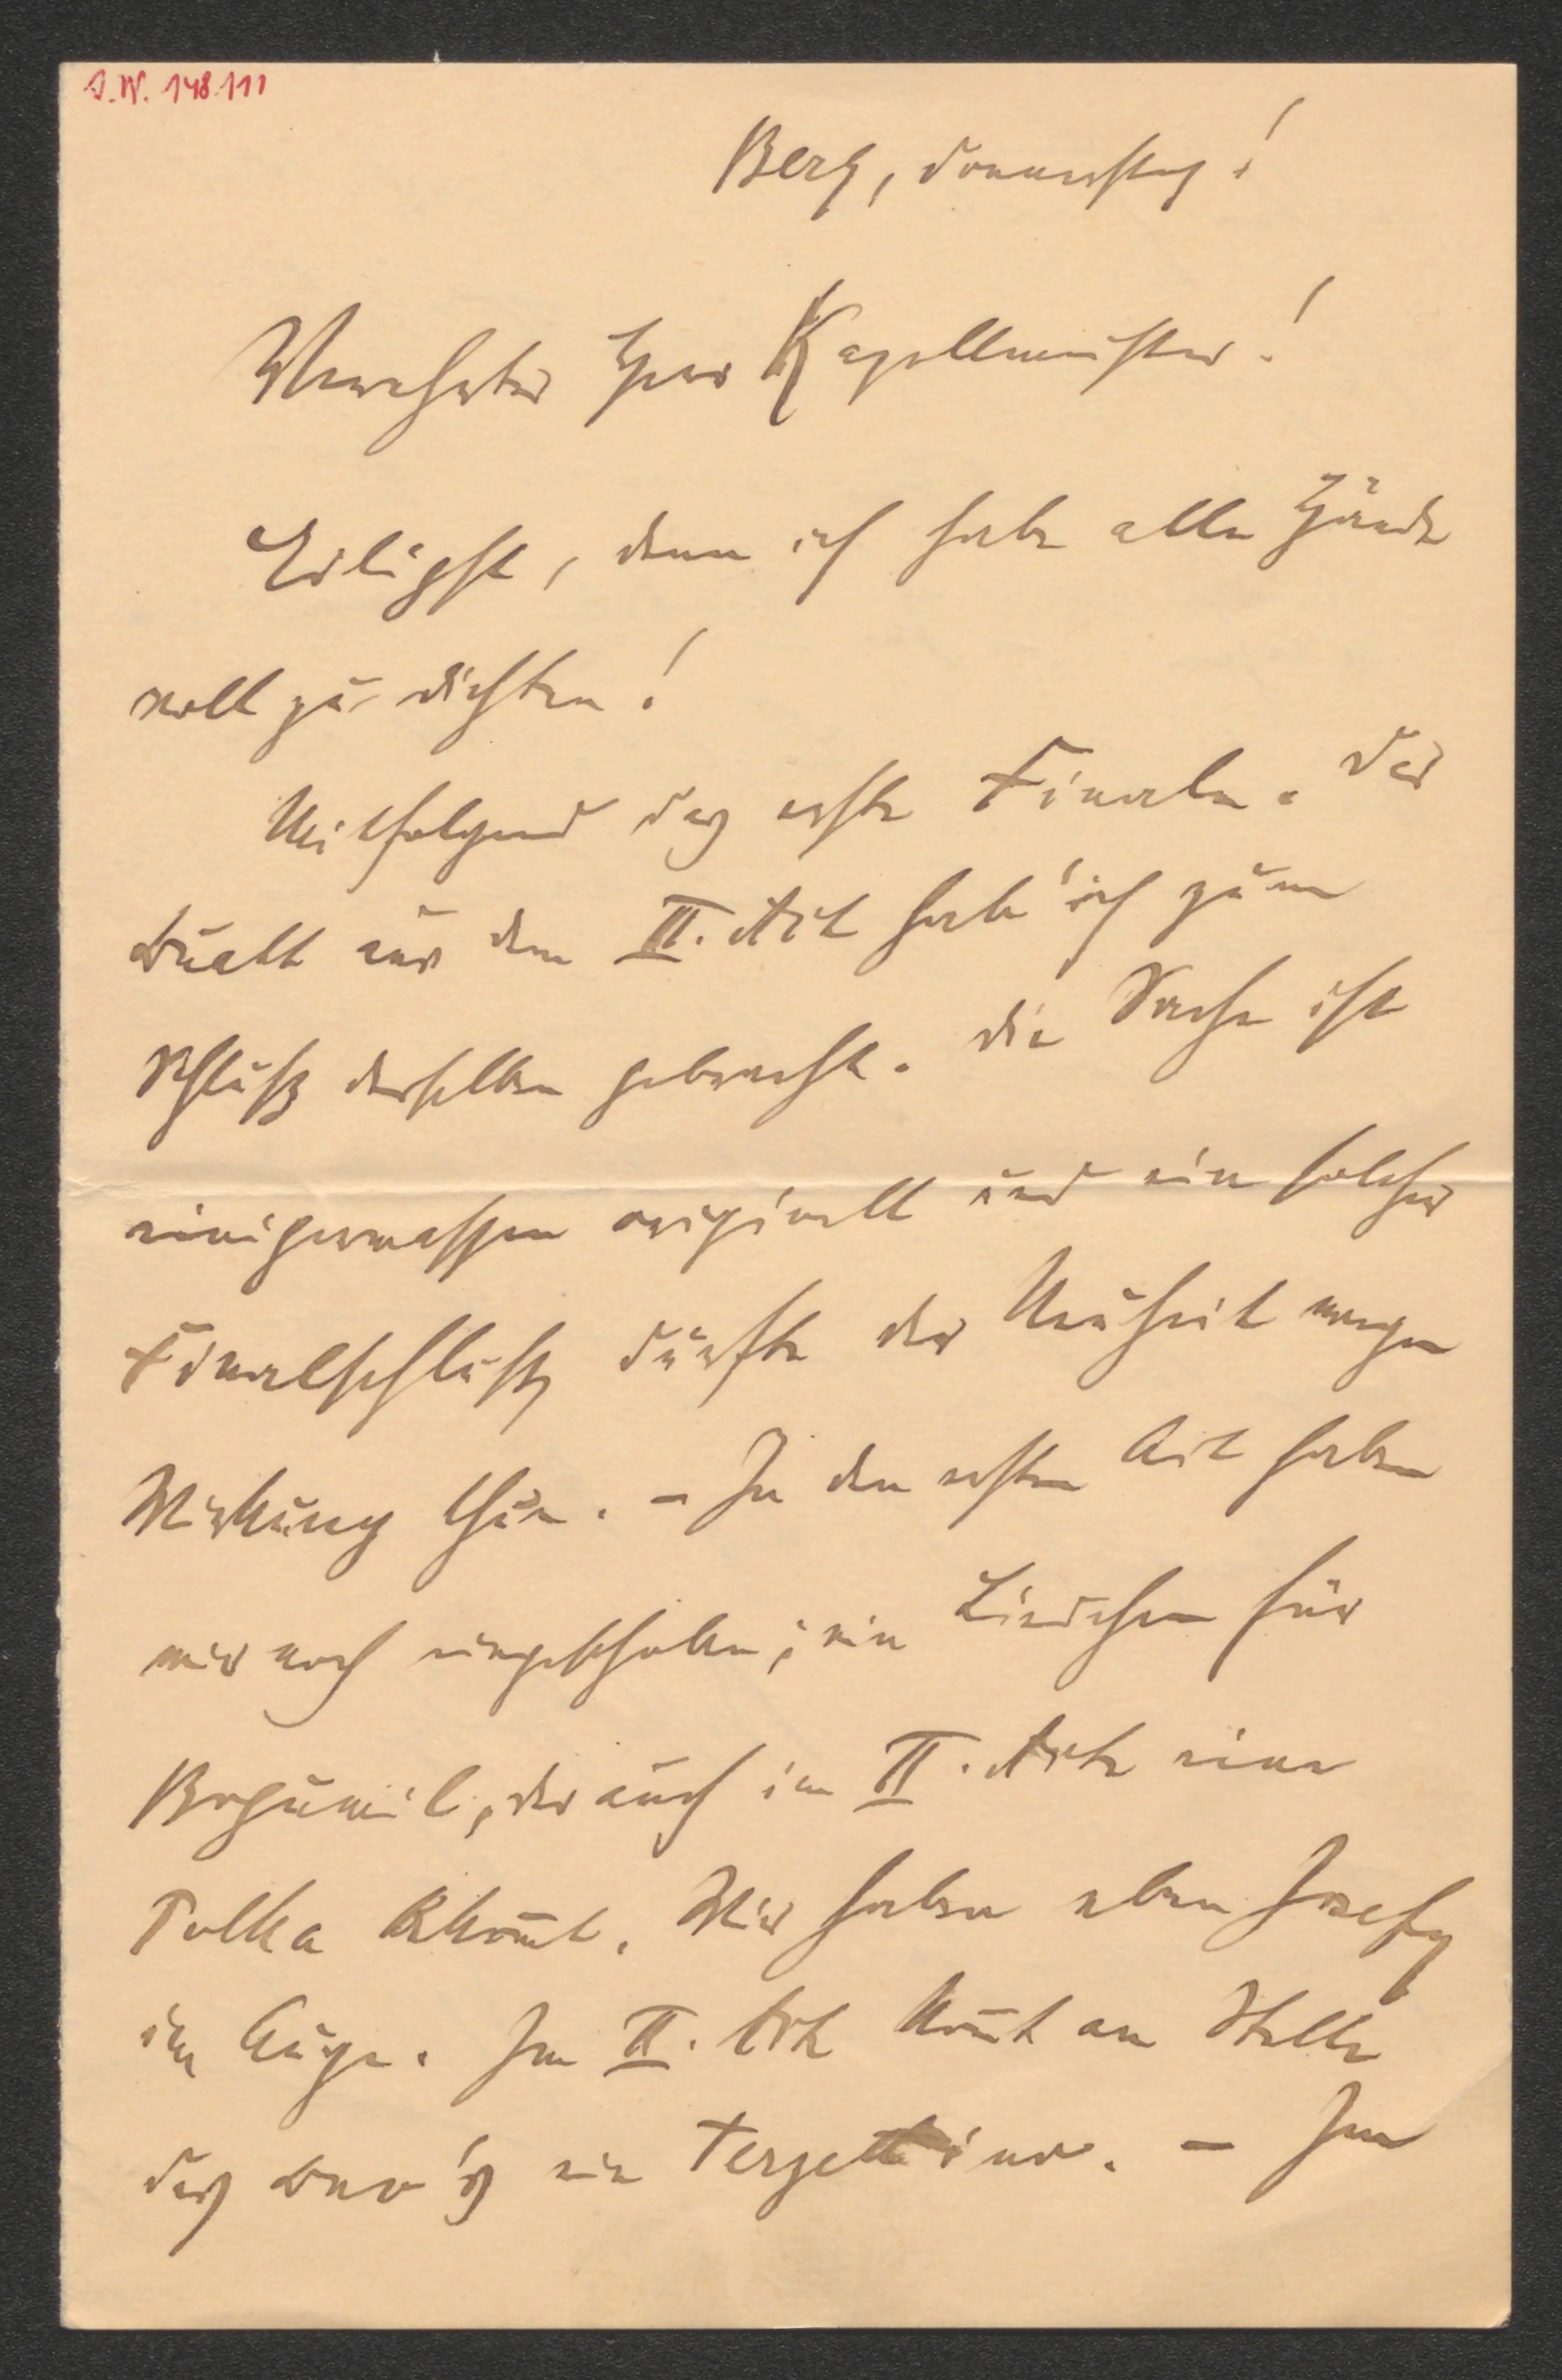 J.N. 148.111
Berg, Donnerstag!
Verehrter Herr Kapellmeister!
Eiligst, denn ich habe alle Hände
voll zu dichten!
Mitfolgend das erste Finale. Das
Duett aus dem II. Akt hab' ich zum
Schluß desselben gebracht. Die Sache ist
einigermassen originell und ein solcher
Finalschluß dürfte der Neuheit wegen
Wirkung thun. – In den ersten Akt haben
wir noch eingeschoben; ein Liedchen für
Bogumil, der auch im II. Akte eine
Polka bekom̄t. Wir haben eben Josefy
im Auge. Im II. Akt kom̄t an Stelle
des Duo's ein Terzettino. – Im